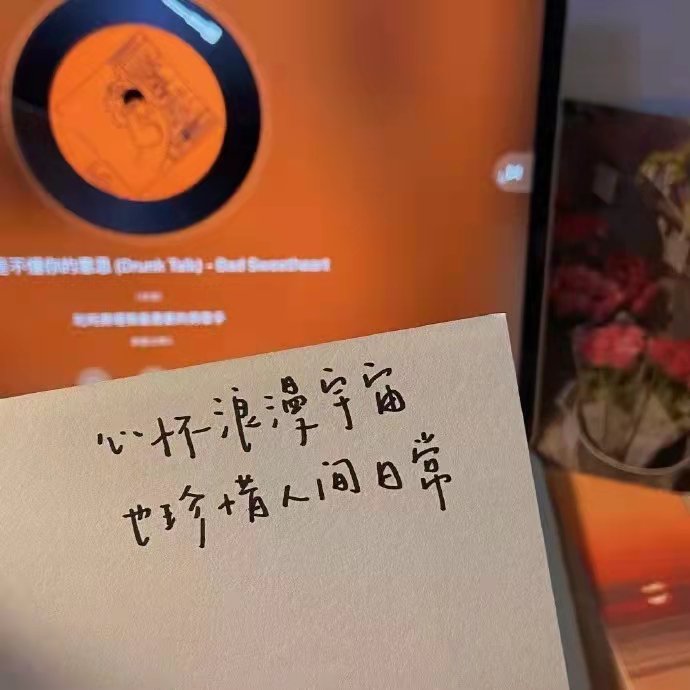 是不懂你的意思 (Drunk Talk) - Bad Sweetheart
心怀浪漫宇宙
也珍惜人间日常